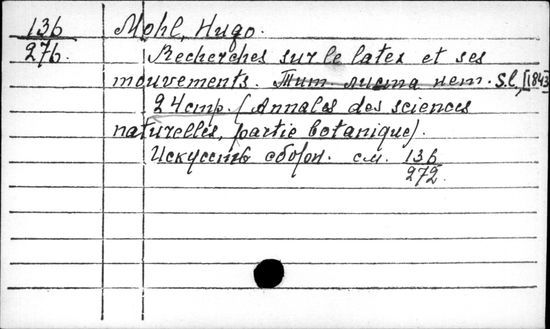 136 Mohl, Hugo.
276. Recherches sur le latex et ses
mouvements. Тит. листа нет. S.l., [1843]
24 стр. (Annales des sciences
naturelles, partie botanique).
Искусств. сборн. см. 136
272.